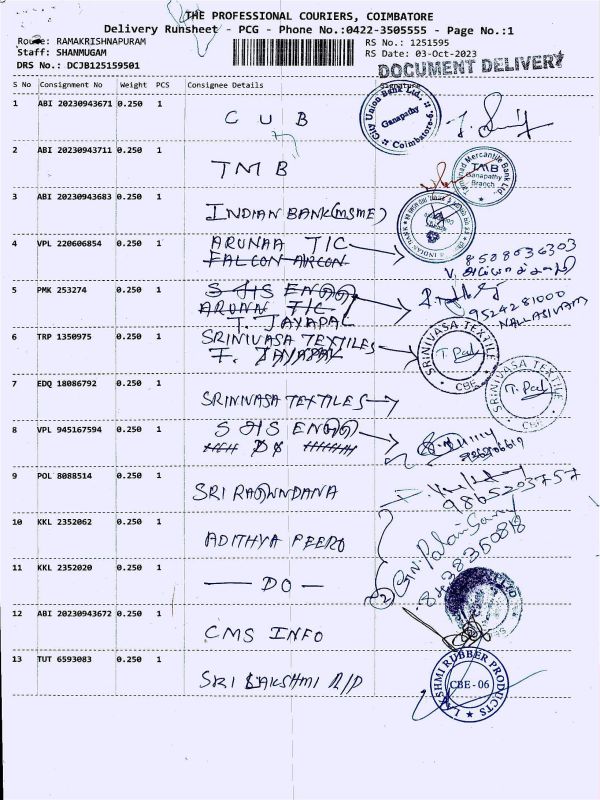 THE PROFESSIONAL COURIERS, COIMBATORE
Delivery Runsheet - PCG - Phone No.:0422-3505555 - Page No.:1
Route: RAMAKRISHNAPURAM
RS No.: 1251595
Staff: SHANMUGAM
RS Date: 03-Oct-2023
DRS No.: DCJB125159501
DOCUMENT DELIVERY
S No Consignment No Weight PCS Consignee Details Signature
1 ABI 20230943671 0.250 1 CUB
City Union Bank Ltd. Ganapathy Coimbatore-6.
2 ABI 20230943711 0.250 1 TMB
Mercantile Bank Ltd TMB Ganapathy Branch
3 ABI 20230943683 0.250 1 INDIAN BANK (MSME)
INDIAN BANK
4 VPL 220606854 0.250 1 ARUNAA TIC
FALCON ARCON
8508036303
5 PMK 253274 0.250 1 S HS ENGG
ARUNN TIC
T. JAYAPAL
9524281000
NALLASIVAM
6 TRP 1350975 0.250 1 SRINIVASA TEXTILES
T. JAYAPAL
SRINIVASA TEXTILE CBE T. Pal
7 EDQ 18086792 0.250 1 SRINIVASA TEXTILES
SRINIVASA TEXTILE CBE T. Pal
8 VPL 945167594 0.250 1 S HS ENGG
9 POL 8088514 0.250 1 SRI RAGUNNDANA
9865203757
10 KKL 2352062 0.250 1 ADITHYA PEERO
G.N. Palani Samy
8438350818
11 KKL 2352020 0.250 1 — DO —
2
12 ABI 20230943672 0.250 1 CMS INFO
13 TUT 6593083 0.250 1 SRI LAKSHMI R/P
LAKSHMI RUBBER PRODUCTS CBE-06